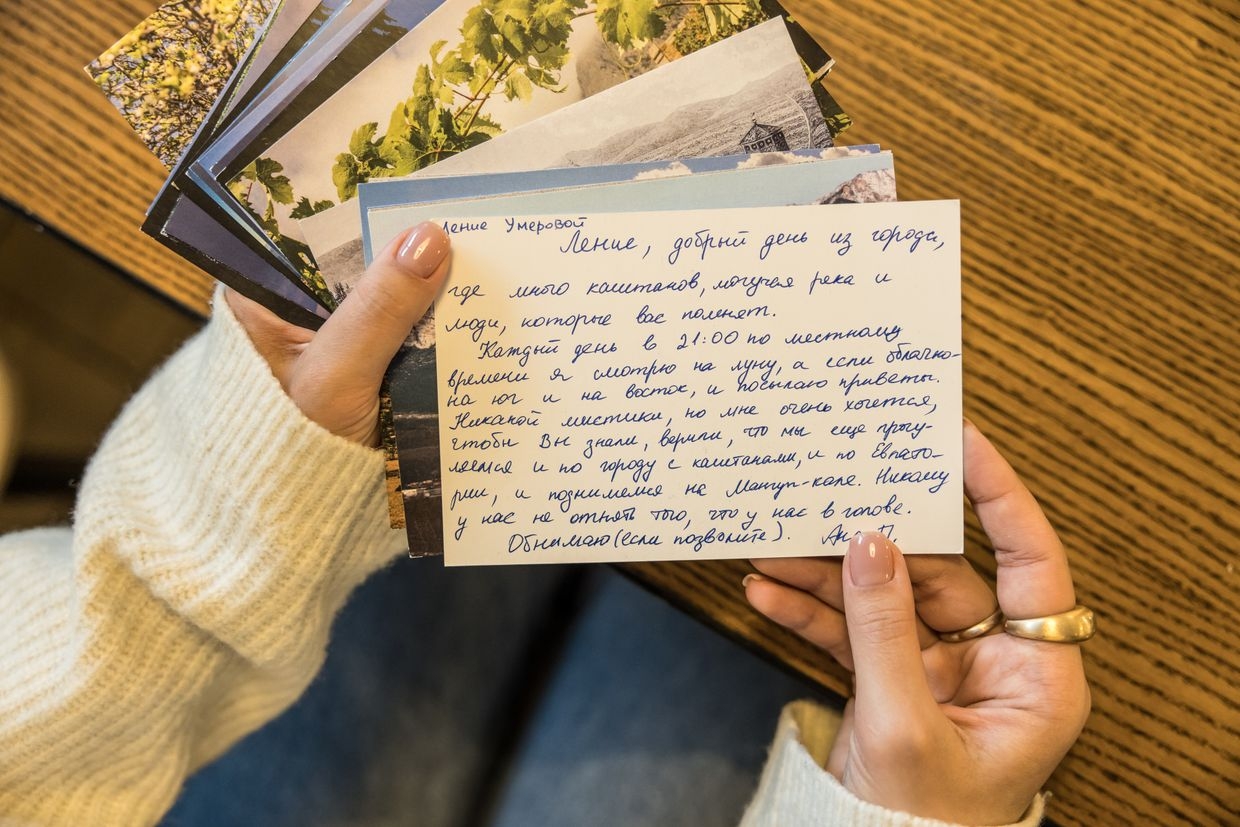 Ление Умеровой
Ление, добрый день из города,
где много каштанов, могучая река и
люди, которые вас помнят.
Каждый день в 21:00 по местному
времени я смотрю на луну, а если облачно-
на юг и на восток, и посылаю приветы.
Никакой мистики, но мне очень хочется,
чтобы Вы знали, верили, что мы еще прогу-
ляемся и по городу с каштанами, и по Евпато-
рии, и поднимемся на Мангуп-кале. Никому
у нас не отнять того, что у нас в голове.
Обнимаю (если позволите).